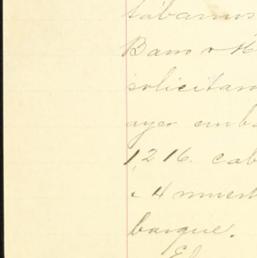 tábamos
Bam
solicitam
ayer emb
1,216. cab
4 muest
barque.
El